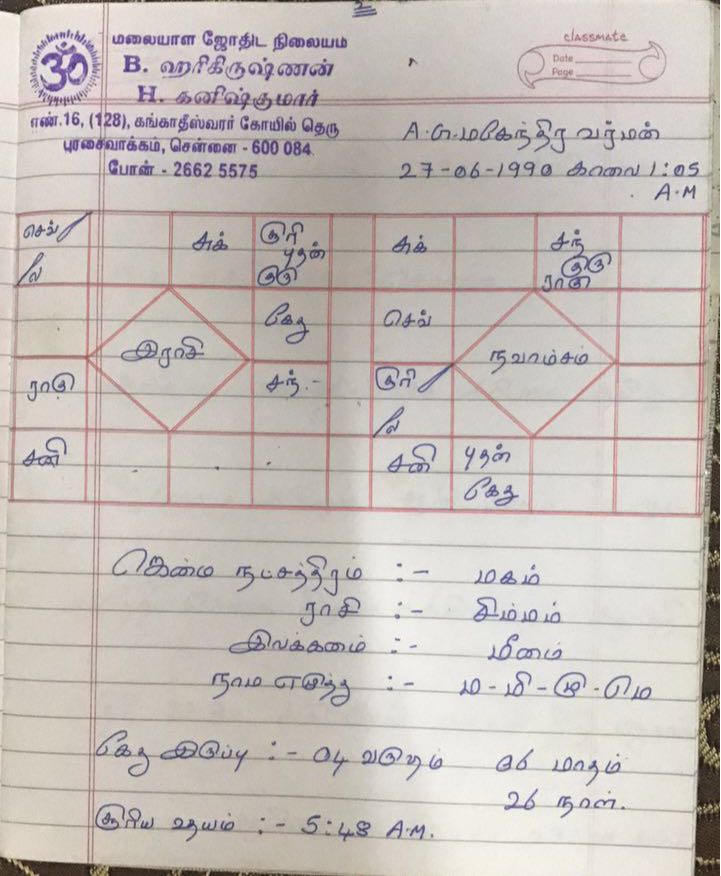 2
மலையாள ஜோதிட நிலையம்
B. ஹரிகிருஷ்ணன்
H. கனிஷ்குமார்
எண்.16, (128), கங்காதீஸ்வரர் கோயில் தெரு
புரசைவாக்கம், சென்னை - 600 084.
போன் - 2662 5575
classmate
Date
Page
A.G.மகேந்திர வர்மன்
27-06-1990 காலை 1:05
A.M
செவ்
ல
சுக்
சூரி
புதன்
குரு
கேது
இராசி
ராகு
சந்.-
சனி
சுக்
சந்
குரு
ராகு
செவ்
நவாம்சம்
சூரி
ல
சனி
புதன்
கேது
ஜென்ம நட்சத்திரம் :- மகம்
ராசி :- சிம்மம்
இலக்கனம் :- மீனம்
நாம எழுத்து :- ம - மி - மு - மெ
கேது இருப்பு :- 04 வருதம் 06 மாதம்
26 நாள்.
சூரிய உதயம் :- 5:48 A.M.